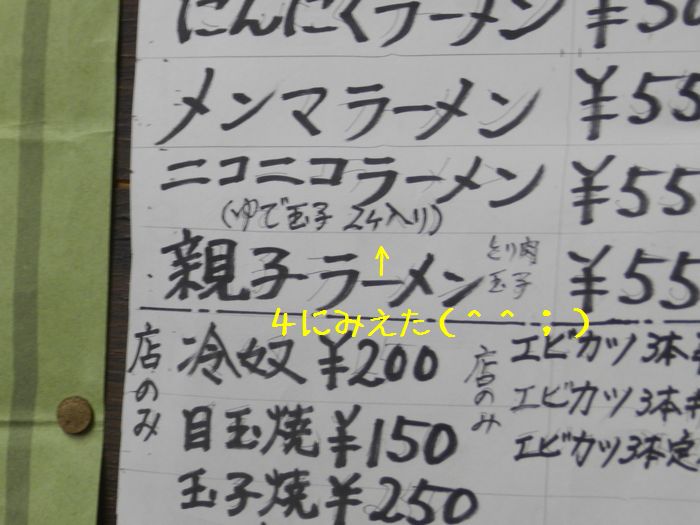 にんにくラーメン ¥50
メンマラーメン ¥55
ニコニコラーメン ¥55
(ゆで玉子 2ケ入り)
↑
親子ラーメン とり肉 玉子 ¥55
4にみえた(^^;)
店のみ
冷奴 ¥200
目玉焼 ¥150
玉子焼 ¥250
店のみ
エビカツ3本
エビカツ3本
エビカツ3本定